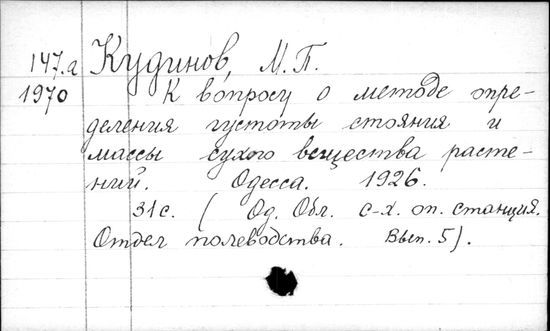 147.а Кудинов, М. П.
1970 К вопросу о методе опре-
деления густоты стояния и
массы сухого вещества расте-
ний. Одесса. 1926.
31 с. (Од. Обл. с-х. оп. станция.
Отдел полеводства. Вып. 5).